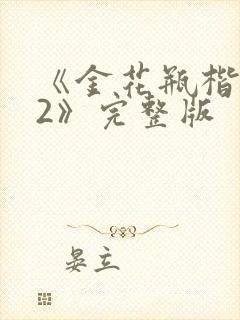 《金花瓶楷
2》完整版
晏立